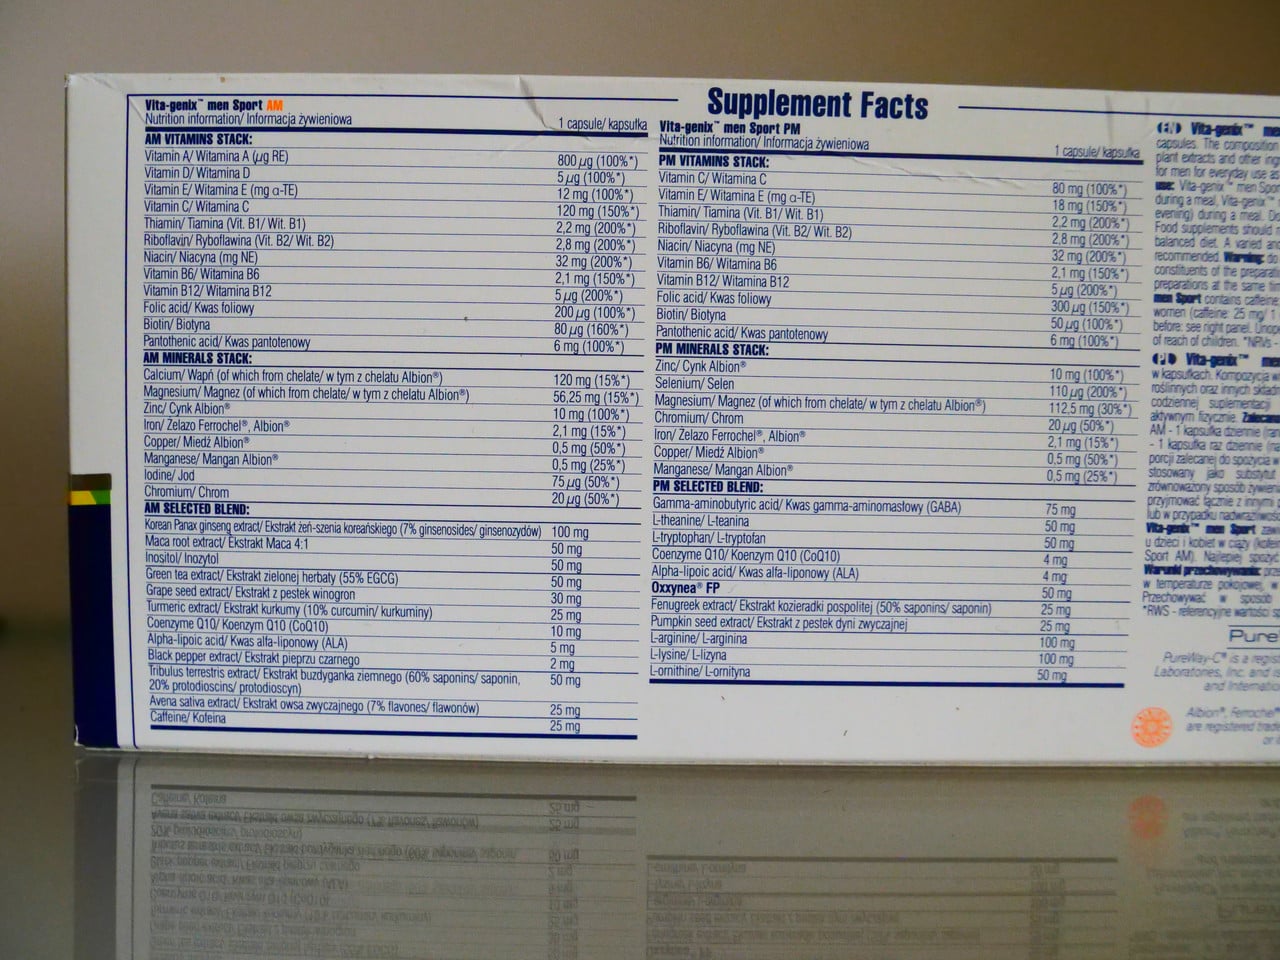 Supplement Facts
Vita-genix™ men Sport AM
Nutrition information/ Informacja żywieniowa 1 capsule/ kapsułka
AM VITAMINS STACK:
Vitamin A/ Witamina A (µg RE) 800 µg (100%*)
Vitamin D/ Witamina D 5 µg (100%*)
Vitamin E/ Witamina E (mg α-TE) 12 mg (100%*)
Vitamin C/ Witamina C 120 mg (150%*)
Thiamin/ Tiamina (Vit. B1/ Wit. B1) 2,2 mg (200%*)
Riboflavin/ Ryboflawina (Vit. B2/ Wit. B2) 2,8 mg (200%*)
Niacin/ Niacyna (mg NE) 32 mg (200%*)
Vitamin B6/ Witamina B6 2,1 mg (150%*)
Vitamin B12/ Witamina B12 5 µg (200%*)
Folic acid/ Kwas foliowy 200 µg (100%*)
Biotin/ Biotyna 80 µg (160%*)
Pantothenic acid/ Kwas pantotenowy 6 mg (100%*)
AM MINERALS STACK:
Calcium/ Wapń (of which from chelate/ w tym z chelatu Albion®) 120 mg (15%*)
Magnesium/ Magnez (of which from chelate/ w tym z chelatu Albion®) 56,25 mg (15%*)
Zinc/ Cynk Albion® 10 mg (100%*)
Iron/ Żelazo Ferrochel®, Albion® 2,1 mg (15%*)
Copper/ Miedź Albion® 0,5 mg (50%*)
Manganese/ Mangan Albion® 0,5 mg (25%*)
Iodine/ Jod 75 µg (50%*)
Chromium/ Chrom 20 µg (50%*)
AM SELECTED BLEND:
Korean Panax ginseng extract/ Ekstrakt żeń-szenia koreańskiego (7% ginsenosides/ ginsenozydów) 100 mg
Maca root extract/ Ekstrakt Maca 4:1 50 mg
Inositol/ Inozytol 50 mg
Green tea extract/ Ekstrakt zielonej herbaty (55% EGCG) 50 mg
Grape seed extract/ Ekstrakt z pestek winogron 30 mg
Turmeric extract/ Ekstrakt kurkumy (10% curcumin/ kurkuminy) 25 mg
Coenzyme Q10/ Koenzym Q10 (CoQ10) 10 mg
Alpha-lipoic acid/ Kwas alfa-liponowy (ALA) 5 mg
Black pepper extract/ Ekstrakt pieprzu czarnego 2 mg
Tribulus terrestris extract/ Ekstrakt buzdyganka ziemnego (60% saponins/ saponin, 50 mg
20% protodioscins/ protodioscyn)
Avena sativa extract/ Ekstrakt owsa zwyczajnego (7% flavones/ flawonów) 25 mg
Caffeine/ Kofeina 25 mg
Vita-genix™ men Sport PM
Nutrition information/ Informacja żywieniowa 1 capsule/ kapsułka
PM VITAMINS STACK:
Vitamin C/ Witamina C 80 mg (100%*)
Vitamin E/ Witamina E (mg α-TE) 18 mg (150%*)
Thiamin/ Tiamina (Vit. B1/ Wit. B1) 2,2 mg (200%*)
Riboflavin/ Ryboflawina (Vit. B2/ Wit. B2) 2,8 mg (200%*)
Niacin/ Niacyna (mg NE) 32 mg (200%*)
Vitamin B6/ Witamina B6 2,1 mg (150%*)
Vitamin B12/ Witamina B12 5 µg (200%*)
Folic acid/ Kwas foliowy 300 µg (150%*)
Biotin/ Biotyna 50 µg (100%*)
Pantothenic acid/ Kwas pantotenowy 6 mg (100%*)
PM MINERALS STACK:
Zinc/ Cynk Albion® 10 mg (100%*)
Selenium/ Selen 110 µg (200%*)
Magnesium/ Magnez (of which from chelate/ w tym z chelatu Albion®) 112,5 mg (30%*)
Chromium/ Chrom 20 µg (50%*)
Iron/ Żelazo Ferrochel®, Albion® 2,1 mg (15%*)
Copper/ Miedź Albion® 0,5 mg (50%*)
Manganese/ Mangan Albion® 0,5 mg (25%*)
PM SELECTED BLEND:
Gamma-aminobutyric acid/ Kwas gamma-aminomasłowy (GABA) 75 mg
L-theanine/ L-teanina 50 mg
L-tryptophan/ L-tryptofan 50 mg
Coenzyme Q10/ Koenzym Q10 (CoQ10) 4 mg
Alpha-lipoic acid/ Kwas alfa-liponowy (ALA) 4 mg
Oxxynea® FP 50 mg
Fenugreek extract/ Ekstrakt kozieradki pospolitej (50% saponins/ saponin) 25 mg
Pumpkin seed extract/ Ekstrakt z pestek dyni zwyczajnej 25 mg
L-arginine/ L-arginina 100 mg
L-lysine/ L-lizyna 100 mg
L-ornithine/ L-ornityna 50 mg
Vita-genix™
capsules. The composition
plant extracts and other
for men for everyday use as
use: Vita-genix™ men
during a meal, Vita-genix™
evening) during a meal. Do
Food supplements should
balanced diet. A varied and
recommended. Warning: do
constituents of the
preparations at the same
men Sport contains caffeine
women (caffeine: 25 mg/ 1
before: see right panel.
of reach of children. *NRVs -
Vita-genix™
w kapsułkach. Kompozycja
roślinnych oraz innych
codziennej suplementacji
aktywnym fizycznie.
AM - 1 kapsułka dziennie
- 1 kapsułka raz dziennie
porcji zalecanej do spożycia w
stosowany jako substytut
zrównoważony sposób
przyjmować łącznie z innymi
lub w przypadku
Vita-genix™ men Sport
u dzieci i kobiet w ciąży
Sport AM). Najlepiej
Warunki przechowywania:
w temperaturze pokojowej, w
Przechowywać w sposób
*RWS - referencyjne wartości
Pure
PureWay-C® is a
Laboratories, Inc. and
and
Albion®,
are registered